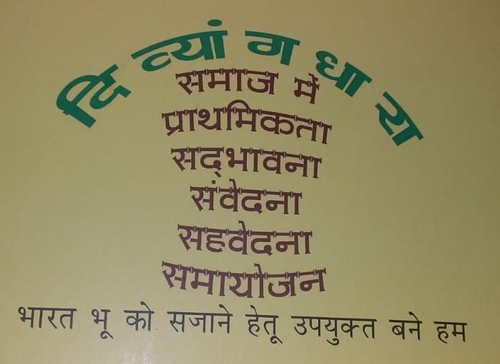 दिव्यांग धारा
समाज में
प्राथमिकता
सद्‌भावना
संवेदना
सहवेदना
समायोजन
भारत भू को सजाने हेतू उपयुक्त बने हम